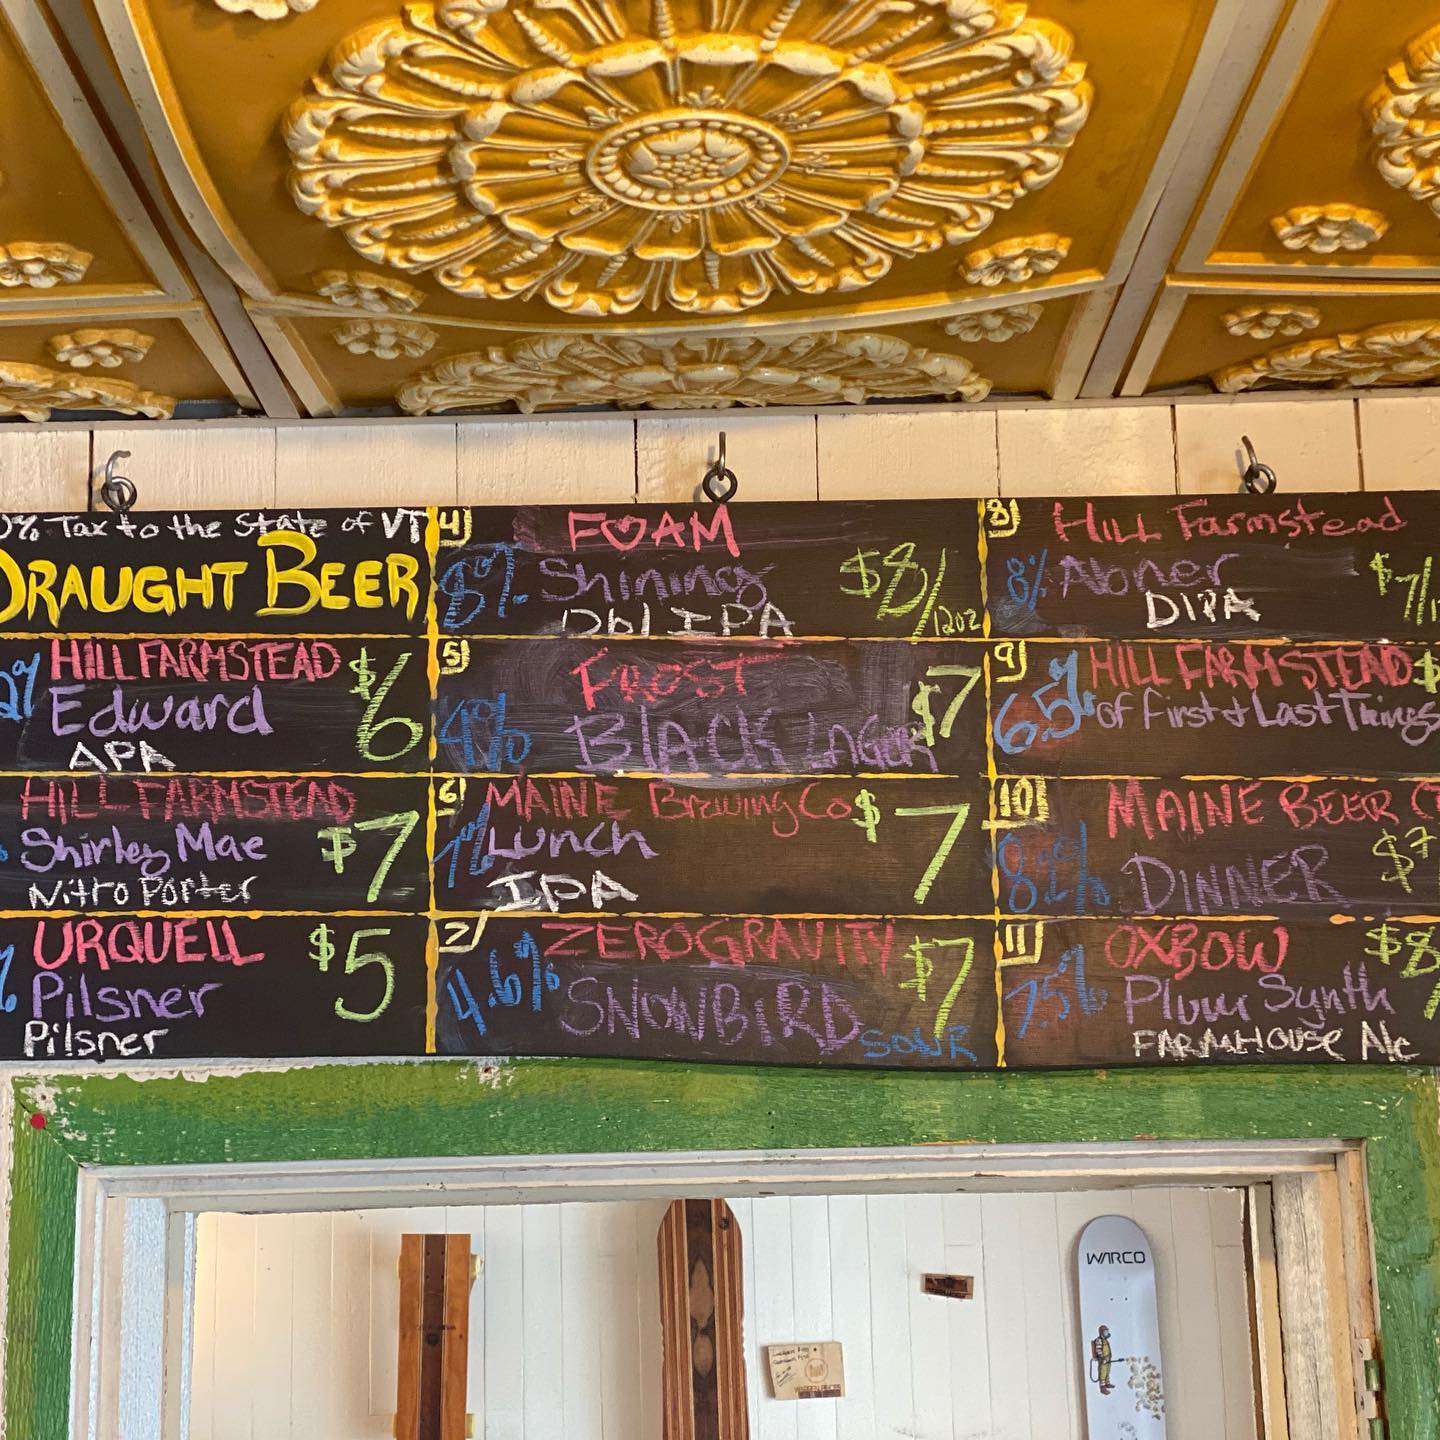 0% Tax to the State of VT
DRAUGHT BEER
2%
HILL FARMSTEAD
$6
Edward
APA
HILL FARMSTEAD
Shirley Mae
$7
Nitro Porter
%
URQUELL
$5
Pilsner
Pilsner
4)
FOAM
8%
Shining
$8/12oz
Dbl IPA
5)
FROST
4%
BLACK LAGER
$7
6)
MAINE Brewing Co
$7
7%
Lunch
IPA
7)
ZEROGRAVITY
$7
4.6%
SNOWBIRD
SOUR
8)
HILL Farmstead
8%
Abner
$7/1
DIPA
9)
HILL FARMSTEAD
$
6.5%
of First & Last Things
10)
MAINE BEER C
8.2%
DINNER
$7
11)
OXBOW
$8
7.5%
Plum Synth
FARMHOUSE Ale
WARCO